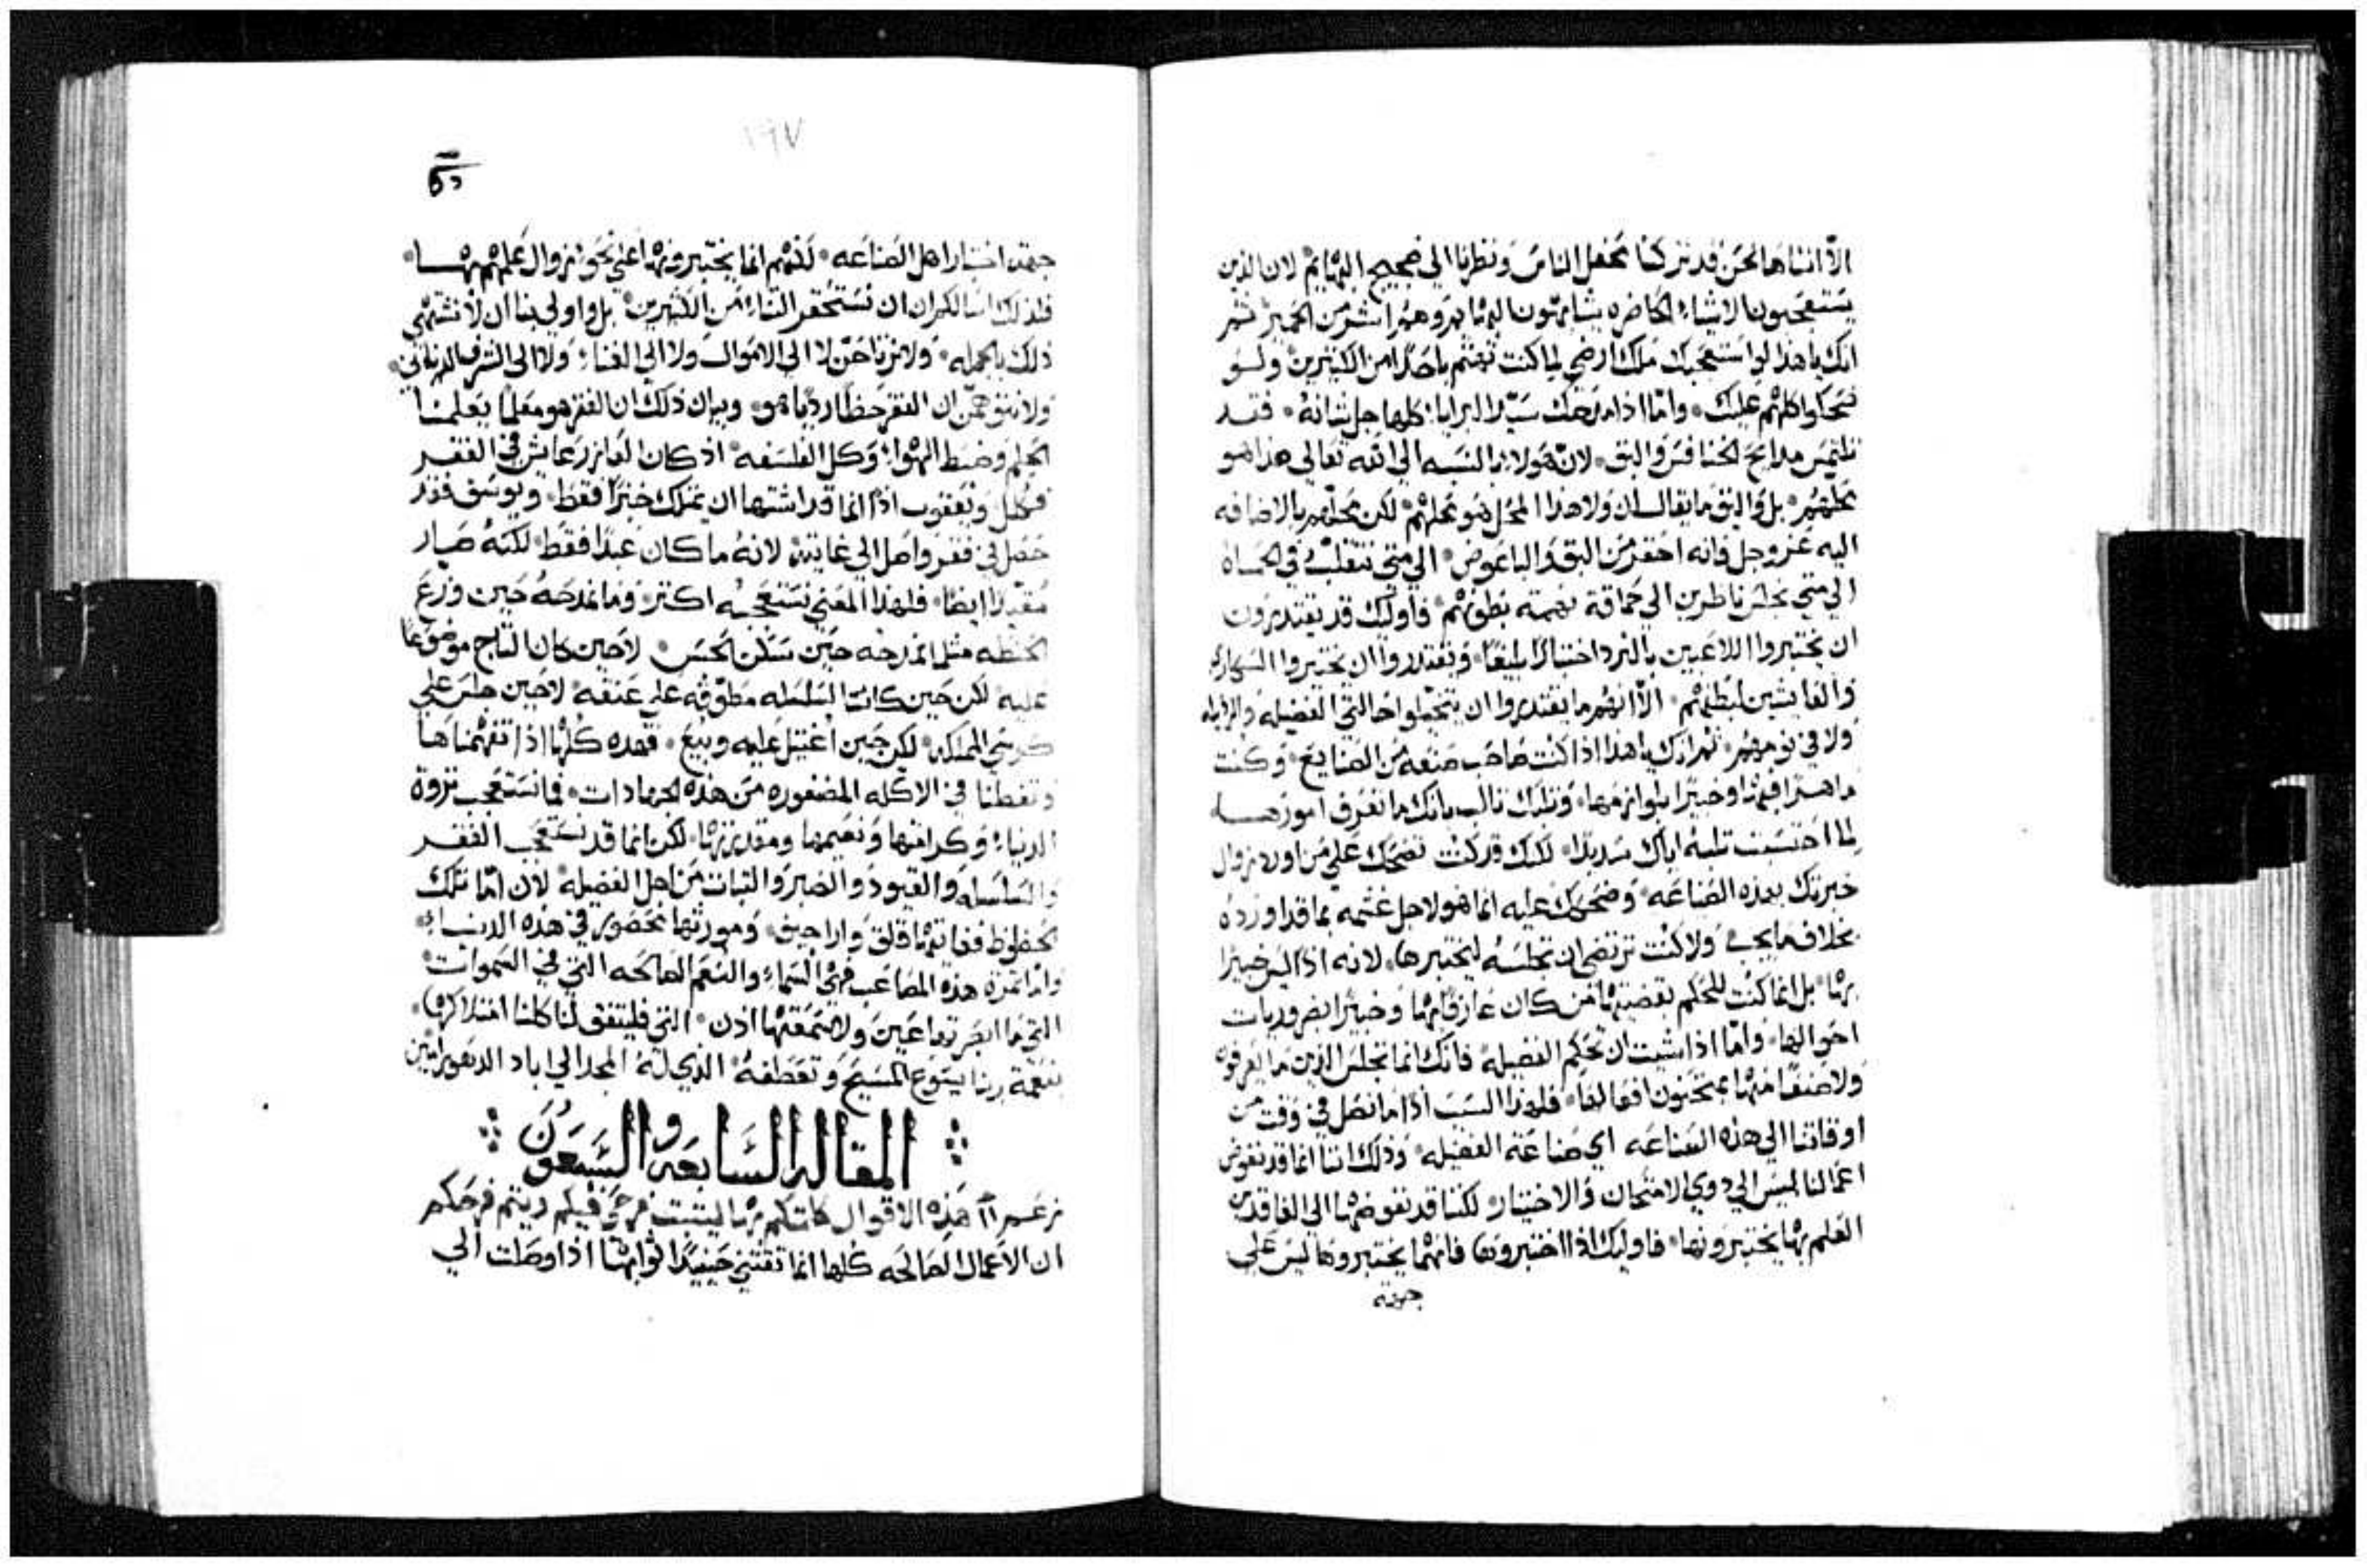 الا اننا ها نحن قد تركنا محفل الناس ونظرنا الي ضجيج البهايم لان الذين
يستعجبون الاشياء الحاضره يشابهون البهايم وهم اشر من الحمير ثم
انك يا هذا لو استعجبك ملك ارضي لما كنت تهتم باحدا من الكثيرين ولو
ضحكوا كلهم عليك واما اذا مدحك سيد البرايا كلها جل شانه فقد
تلتمس مدايح الخنافس والبق لان هولاء بالنسبه الي الله تعالي هذا هو
محلهم بل والبق ما يقال ان ولا هذا المحل هو محلهم لكن محلهم بالاضافه
اليه عز وجل فانه احقر من البق والباعوض الي متي نتقلب في الحماه
الي متي نجلس ناظرين الي حماقة نهمته بطونهم فاوليك قد يقتدرون
ان يختبروا اللاعبين بالنرد اختبارا بليغا ويقتدروا ان يختبروا السكاري
والعايشين لبطنهم الا انهم ما يقتدروا ان يتخيلوا حالتي الفضيله والرذيله
ولا في نومهم ثم اراك يا هذا اذا كنت صاحب صنعه من الصنايع وكنت
ماهرا فيها وخبيرا بلوازمها وثلبك ثالب بانك ما تعرف امورها
لما احتسبت ثلبه اياك شديدا لكنك قد كنت تضحك علي من اورد زوال
خبرتك بهذه الصناعه وضحكك عليه انما هو لاجل غشمه بما قد اورده
بخلاف ما يجب ولا كنت ترتضي ان تجلسه ليختبرها لانه اذا ليس خبيرا
بها بل انما كنت للحكم بقضيتها من كان عارفا بها وخبيرا بضروريات
احوالها واما اذا شيت ان تحكم الفضيله فانك انما تجلس الذين ما يعرفون
ولا صنفا منها يمتحنون افعالها فلهذا السبب اذا ما نصل في وقت من
اوقاتنا الي هذه الصناعه اي صناعة الفضيله وذلك اننا انما قد نفوض
اعمالنا ليس الي ذوي الامتحان والاختيار لكننا قد نفوضها الي الفاقدين
العلم بها يختبرونها فاوليك اذا اختبروها فانهما يختبروها ليس علي
جهة
١٩٧
جهة اختبار اهل الصناعه لكنهم انما يختبرونها اعني نحو زوال علمهم بها
فلذلك اسالكم ان نستحقر الثناء من الكثيرين بل واولي بنا ان لا نشتهي
ذلك بالجمله ولا نرتاحن لا الي الاموال ولا الي الغناء ولا الي الشرف الدنياني
ولا نتوهمن ان الفقر حظا رديا هو وبيان ذلك ان الفقر هو معلما يعلمنا
الحلم وضبط الهوا وكل الفلسفه اذ كان العازر عايش في الفقر
فكلل ويعقوب اذا انما قد اشتها ان يمتلك خبزا فقط ويوسف فقد
حصل في فقر واصل الي غايته لانه ما كان عبدا فقط لكنه صار
مقيدا ايضا فلهذا المعني نستعجبه اكثر وما نمدحه حين وزع
الحنطه مثلما نمدحه حين سكن الحبس لا حين كان التاج موضوعا
عليه لكن حين كانت السلسله مطوقه علي عنقه لا حين جلس علي
كرسي المملكه لكن حين اغتيل عليه وبيع فهذه كلها اذا تفهمناها
وتفطنا في الاكله المضفوره من هذه الجهادات فما نستعجب ثروة
الدنياء وكرامتها ونعيمها ومقدرتها لكن انما قد نستعجب الفقر
والسلسله والقيود والصبر والثبات من اجل الفضيله لان اما تلك
الحظوظ فغايتها قلق واراجيف ومورثتها محصور في هذه الدنياء
واما ثمرة هذه المصاعب فهي السماء والنعم الصالحه التي في السموات
التي ما ابصرتها عين ولا سمعتها اذن التي فليتفق لنا كلنا امتلاكها
بنعمة ربنا يسوع المسيح وتعطفه الذي له المجد الي اباد الدهور امين
المقاله السابعه والسبعون
هذه الاقوال ما تكلم بها
ان الاعمال الصالحه كلها انما تقتني حينيذا ثوابها اذا وصلت الي